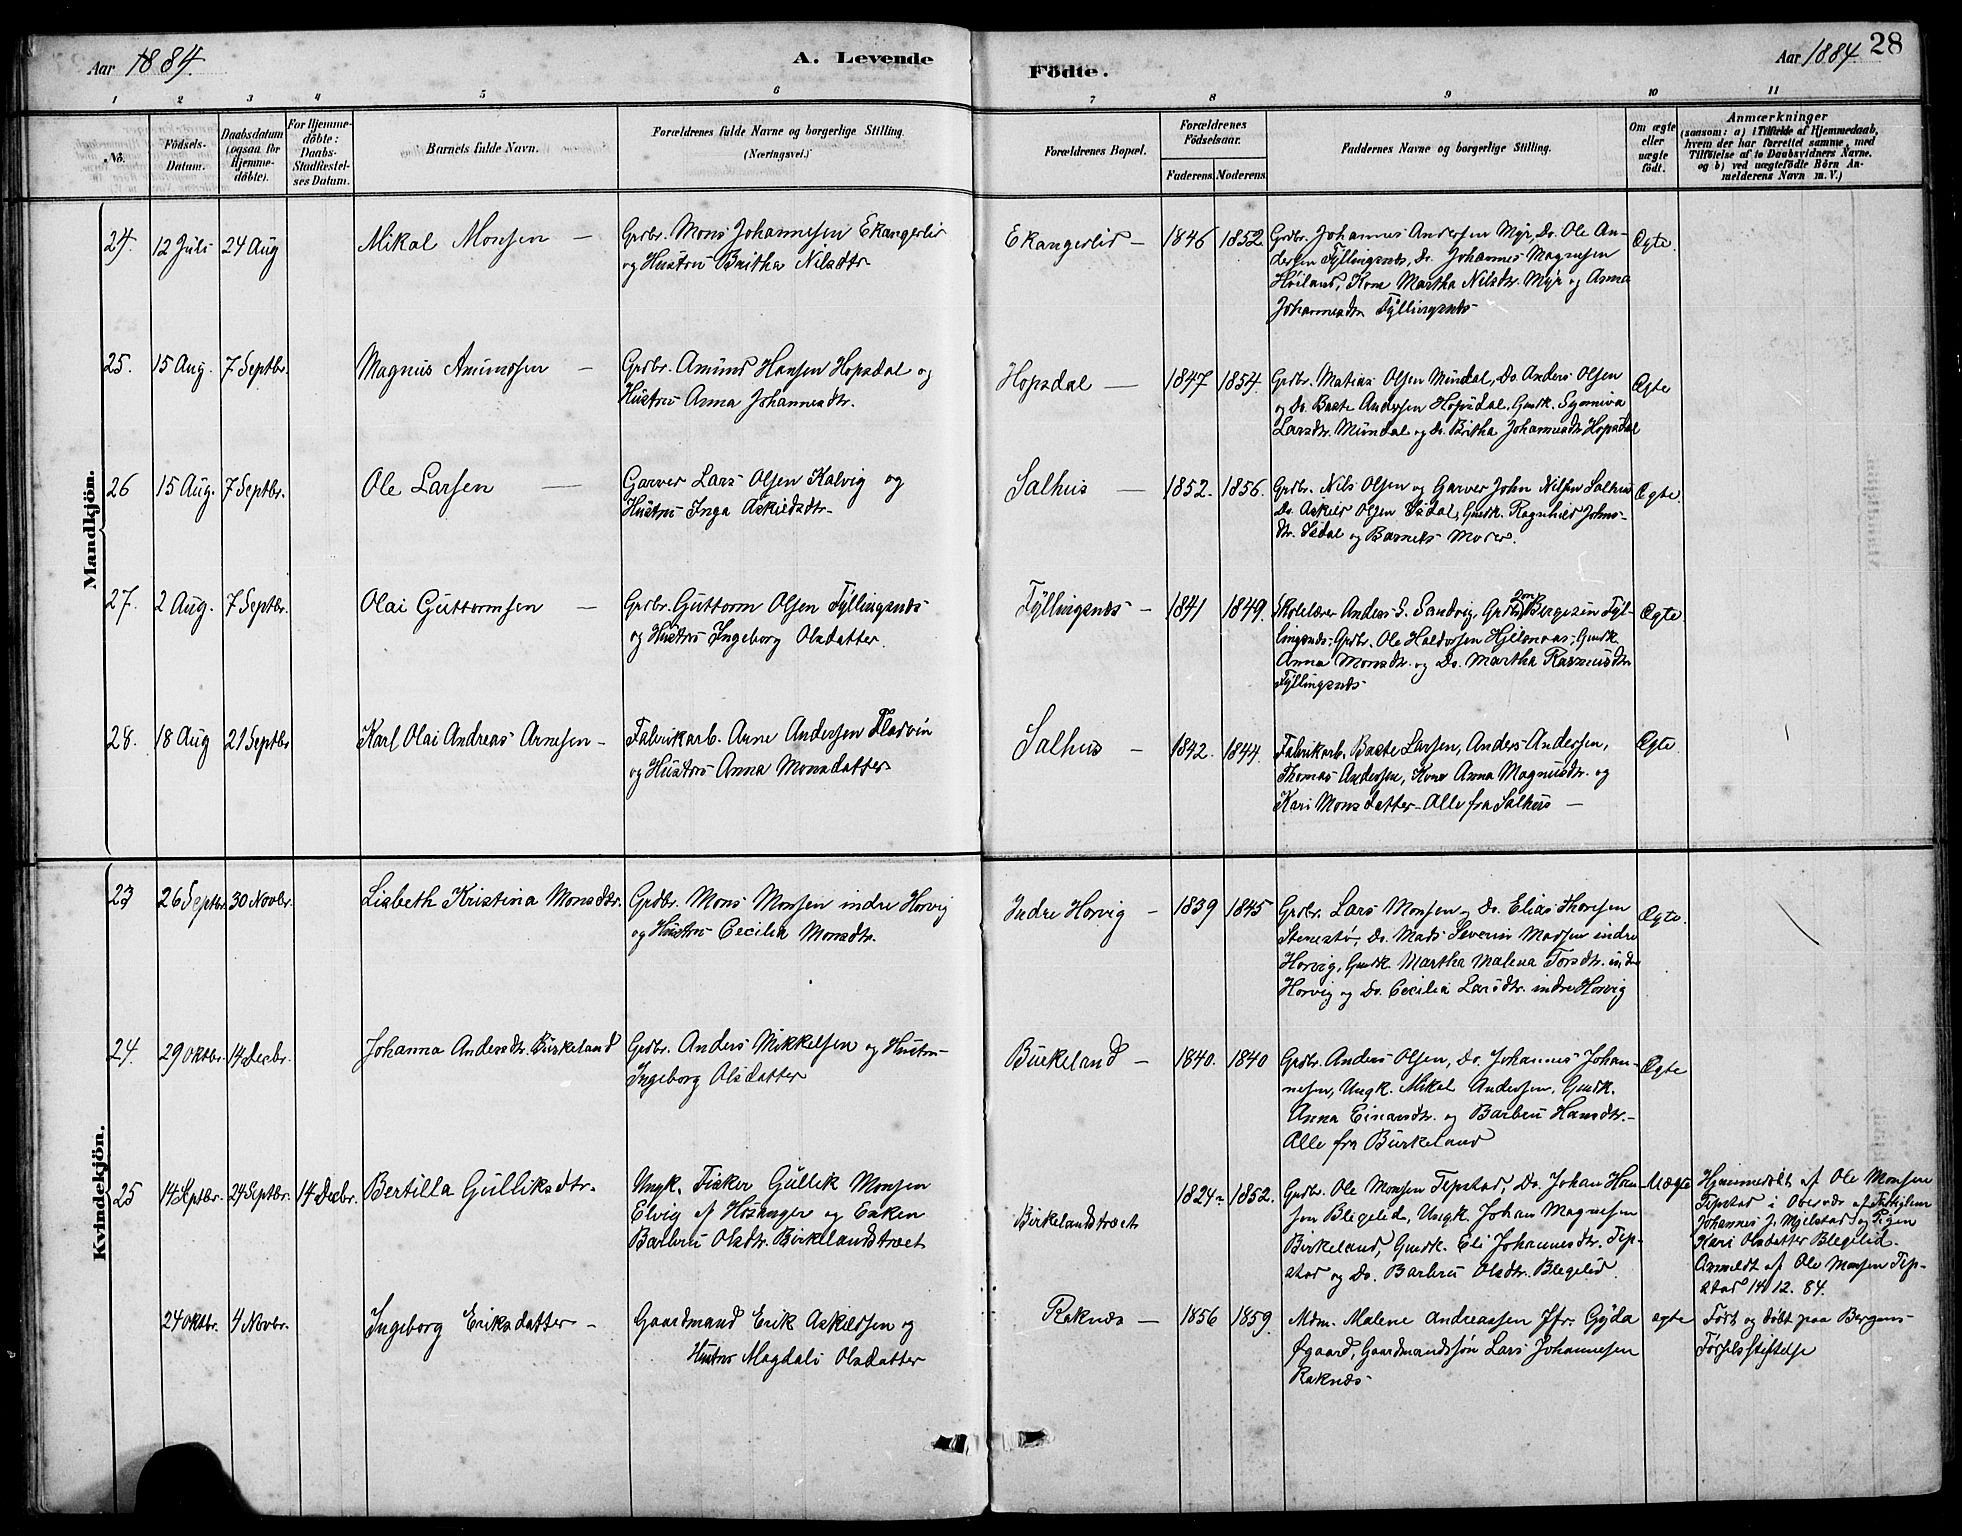 Aar 1884.
A. Levende Födte.
Aar 1884
28
1 2 3 4 5 6 7 8 9 10 11
No.
Födsels-Datum.
Daabsdatum (ogsaa for Hjemme-döbte).
For Hjemme-döbte: Daabs-Stadfæstel-ses Datum.
Barnets fulde Navn.
Forældrenes fulde Navne og borgerlige Stilling.
(Næringsvei.)
Forældrenes Bopæl.
Forældrenes Födselsaar.
Faderens. Moderens.
Faddernes Navne og borgerlige Stilling.
Om ægte eller uægte födt.
Anmærkninger
(saasom: a) i Tilfælde af Hjemmedaab,
hvem der har forrettet samme, med
Tilföielse af to Daabsvidners Navne.
og b) ved uægtefödte Börn An-
melderens Navn m. V.)
Mandkjön.
24. 12 Juli 24 Aug
Mikal Monsen —
Grdbr. Mons Johannesen Ekangerlid
og Hustru Britha Nilsdtr
Ekangerlid —
1846 1852
Grdbr. Johannes Andersen Myr, Do. Ole An-
dersen Fyllingsnæs, Do. Johannes Magnesen
Höiland, Kone Martha Nilsdtr. Myr og Anna
Johannesdtr Fyllingsnæs
Ægte.
25. 15 Aug. 7 Septbr.
Magnus Amundsen —
Grdbr. Amund Hansen Hopsdal og
Hustru Anna Johannesdtr.
Hopsdal —
1847 1854.
Grdbr. Matias Olsen Mundal, Do. Anders Olsen
og Do. Baste Andersen Hopsdal, Gmdk. Synneva
Larsdtr. Mundal og Do. Britha Johannesdtr Hopsdal
Ægte
26 15 Aug. 7 Septbr.
Ole Larsen —
Garver Lars Olsen Kalvig og
Hustru Inga Askildsdtr.
Salhus —
1852. 1856.
Grdbr. Nils Olsen og Garver John Nilsen Salhus
Do. Askild Olsen Isdal, Gmdk. Ragnhild Johns-
dtr. Isdal og Barnets Moder.
Ægte.
27. 2 Aug. 7 Septbr.
Olai Guttormsen —
Grdbr. Guttorm Olsen Fyllingsnæs
og Hustru Ingeborg Olsdatter.
Fyllingsnæs —
1841 1849.
Skolelærer Anders S. Sandvig, Grdbr. Bergesen Fyl-
lingsnæs, Grdbr. Ole Haldorsen Hjelmaas, Gmdk.
Anna Monsdtr. og Do. Martha Rasmusdtr
Fyllingsnæs
Ægte.
28. 18 Aug 21 Septbr
Karl Olai Andreas Arnesen —
Fabrikarb. Arne Andersen Fladvin
og Hustru Anna Monsdatter
Salhus —
1842. 1844.
Fabrikarb. Baste Larsen, Anders Andersen,
Thomas Andersen, Kone Anna Magnusdtr. og
Kari Monsdatter – Alle fra Salhus —
Ægte.
Kvindekjön.
23 26 Septbr. 30 Novbr.
Lisbeth Kristina Monsdtr.
Grdbr. Mons Monsen indre Horvig
og Hustru Cecilia Monsdtr.
Indre Horvig —
1839 1845
Grdbr. Lars Monsen og Do. Elias Thoresen
Stenestö, Do. Mads Severin Madsen indre
Horvig, Gmdk. Martha Malena Torsdtr. indre
Horvig og Do. Cecilia Larsdtr. indre Horvig
Ægte.
24. 29 Oktbr. 14 Decbr.
Johanna Andersdtr. Birkeland
Grdbr. Anders Mikkelsen og Hustru
Ingeborg Olsdatter
Birkeland —
1840. 1840
Grdbr. Anders Olsen, Do. Johannes Johan-
nesen, Ungk. Mikal Andersen, Gmdk.
Anna Einarsdtr. og Barbru Hansdtr. –
Alle fra Birkeland
Ægte
25 14 Septbr. 24 Septbr. 14 Decbr.
Bertilla Gulliksdtr.
Ungk. Fisker Gullik Monsen
Elvig af Hosanger og Enken
Barbru Olsdtr. Birkelandstræet
Birkelandstræet
1824 1852.
Grdbr. Ole Monsen Tepstad, Do. Johan Han-
sen Blegelid, Ungk. Johan Magnesen
Birkeland, Gmdk. Eli Johannesdtr. Tep-
stad og Do. Barbru Olsdtr. Blegelid.
Uægte
Hjemmedöbt af Ole Monsen
Tepstad i Overvær af Fattiglem
Johannes J. Mjelstad og Pigen
Kari Olsdatter Blegelid.
Anmeldt af Ole Monsen Tep-
stad 14/12. 84.
24 Oktbr. 4 Novbr.
Ingeborg Eriksdatter —
Gaardmand Erik Askildsen og
Hustru Magdali Olsdatter
Raknæs —
1856 1859.
Mdm. Malene Andreassen Jfr. Gyda
Øgaard, Gaardmandssön Lars Johannesen
Raknæs
ægte
Födt og döbt paa Bergens
Födselsstiftelse